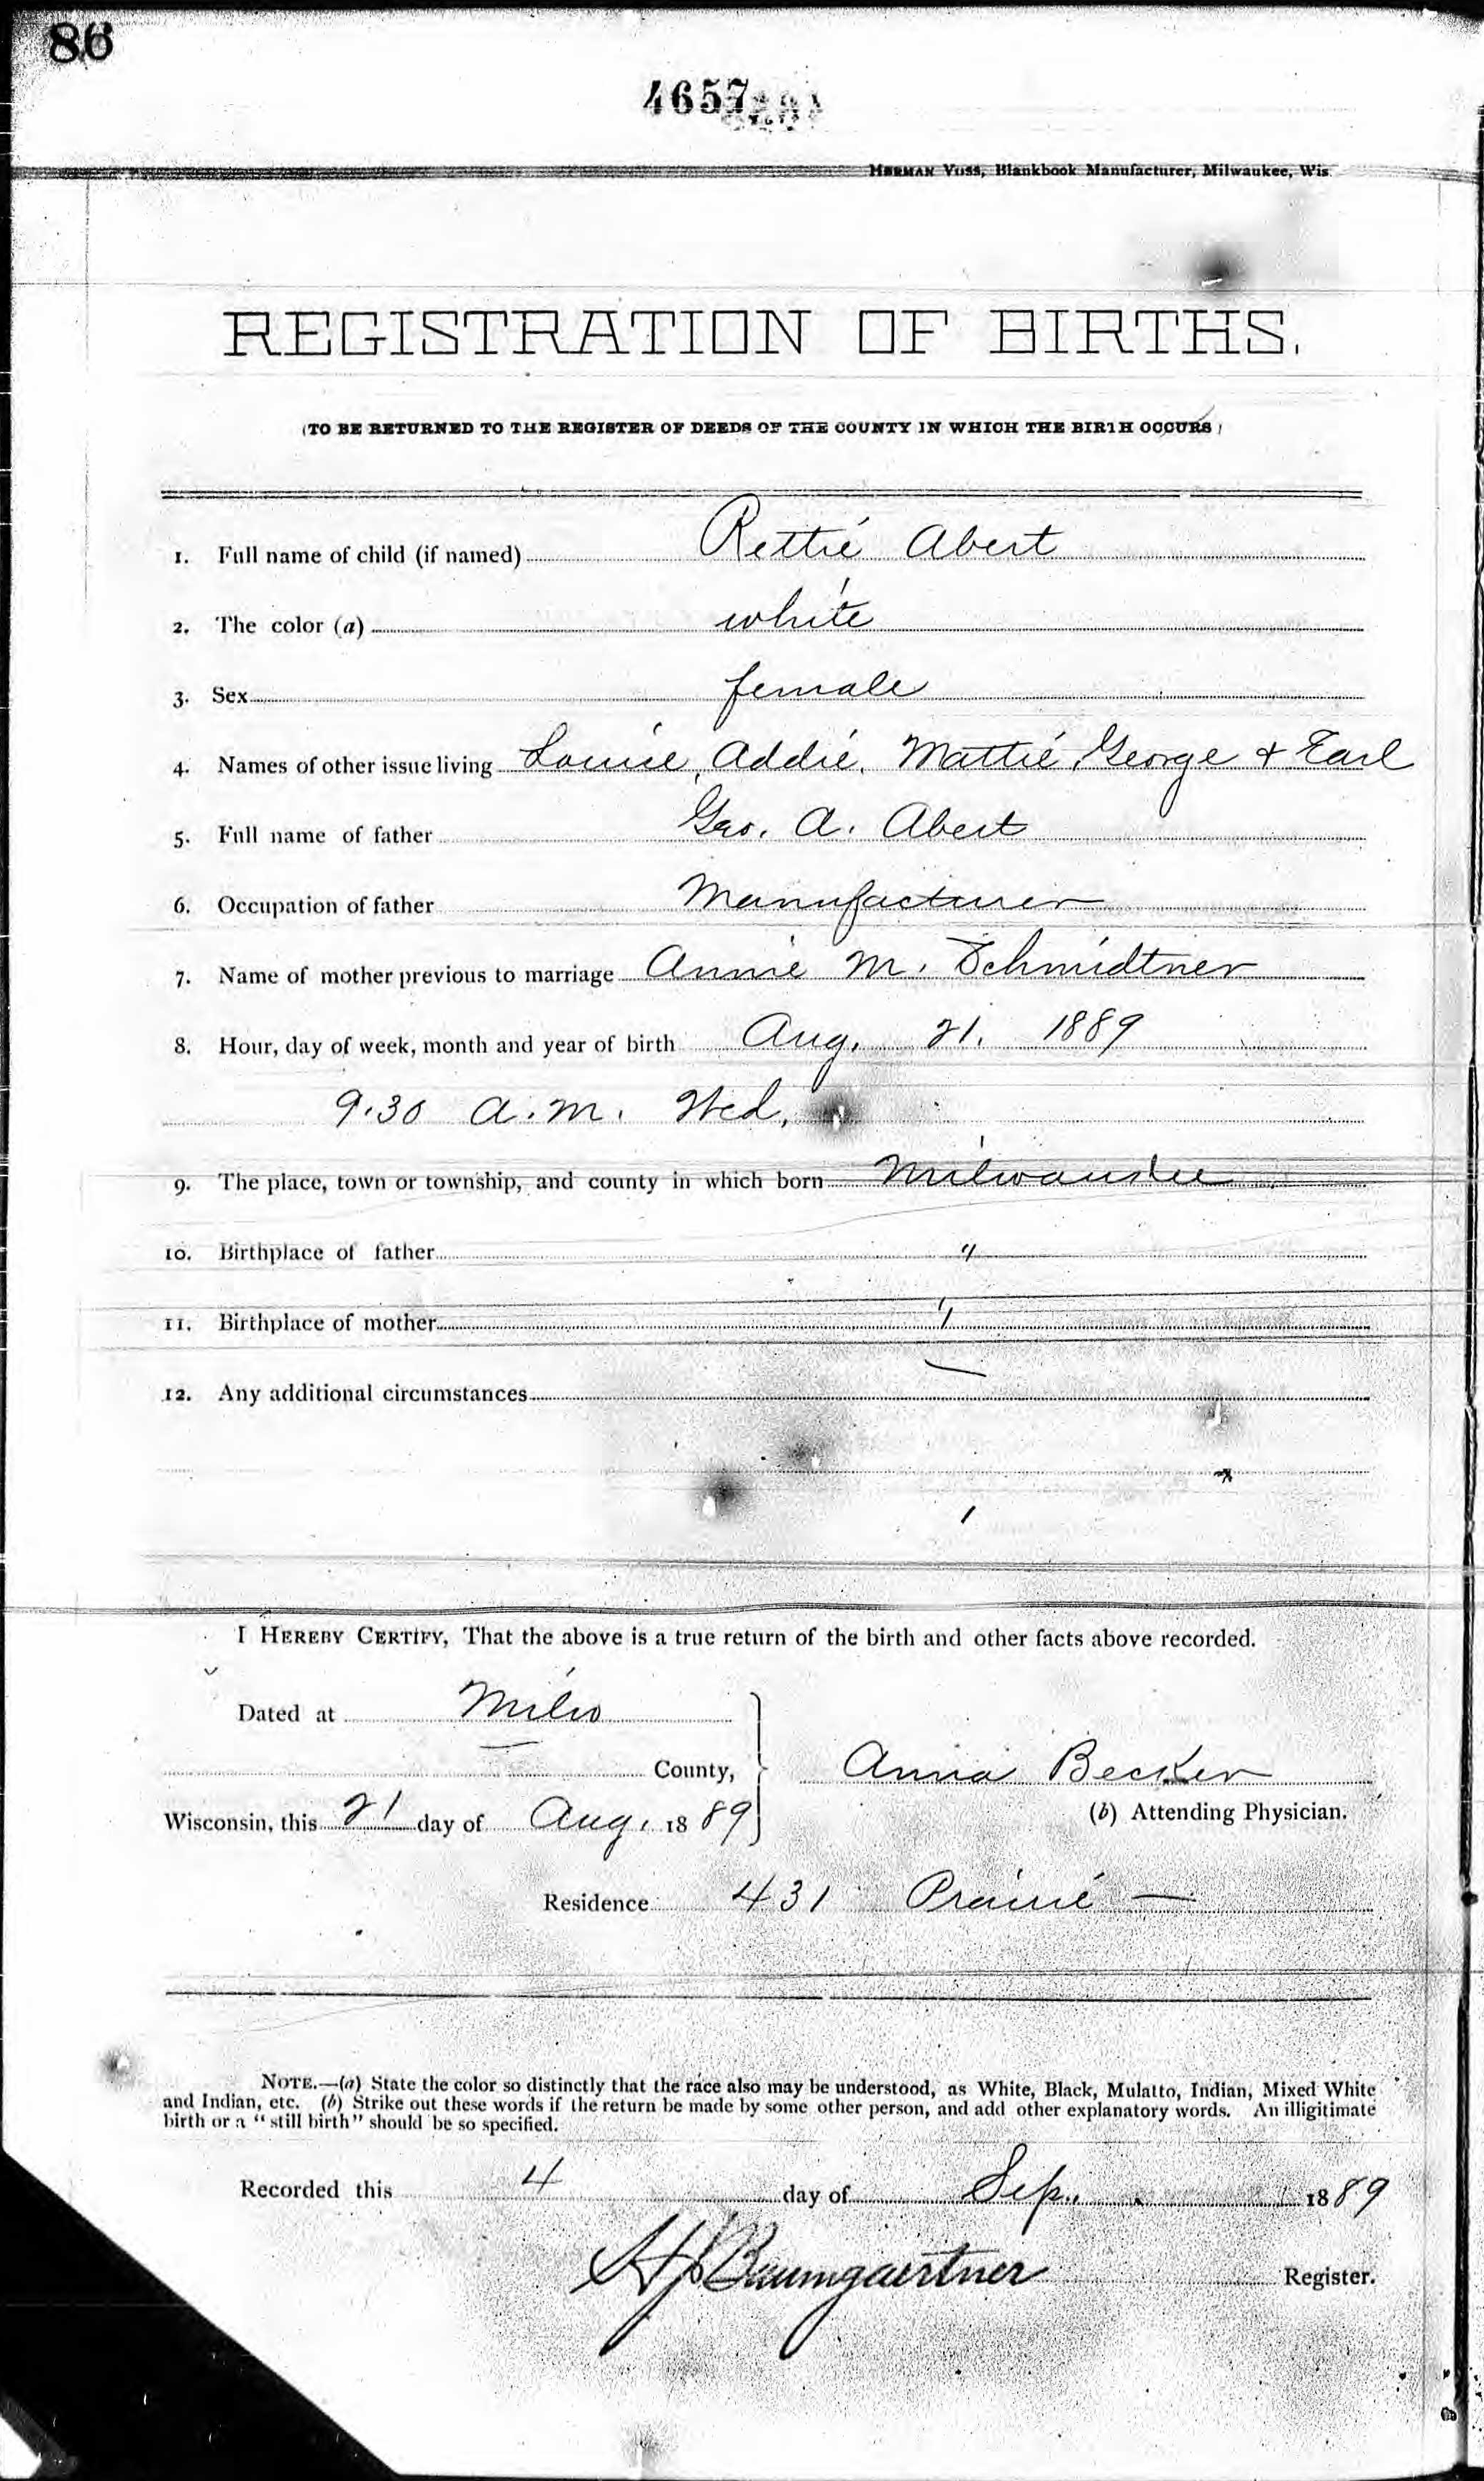 86
4657
HERMAN VOSS, Blankbook Manufacturer, Milwaukee, Wis.
REGISTRATION OF BIRTHS.
(TO BE RETURNED TO THE REGISTER OF DEEDS OF THE COUNTY IN WHICH THE BIRTH OCCURS)
1. Full name of child (if named) Rettie Abert
2. The color (a) white
3. Sex female
4. Names of other issue living Louise, Addie, Mattie, George & Earl
5. Full name of father Geo. A. Abert
6. Occupation of father Manufacturer
7. Name of mother previous to marriage Annie M. Schmidtner
8. Hour, day of week, month and year of birth Aug. 21. 1889
9.30 a.m. Wed,
9. The place, town or township, and county in which born Milwaukee
10. Birthplace of father "
11. Birthplace of mother "
12. Any additional circumstances —
I HEREBY CERTIFY, That the above is a true return of the birth and other facts above recorded.
Dated at Milw
County,
Anna Becker
(b) Attending Physician.
Wisconsin, this 21 day of Aug. 1889
Residence 431 Prairie —
NOTE.—(a) State the color so distinctly that the race also may be understood, as White, Black, Mulatto, Indian, Mixed White
and Indian, etc. (b) Strike out these words if the return be made by some other person, and add other explanatory words. An illigitimate
birth or a "still birth" should be so specified.
Recorded this 4 day of Sep. 1889
Baumgaertner Register.